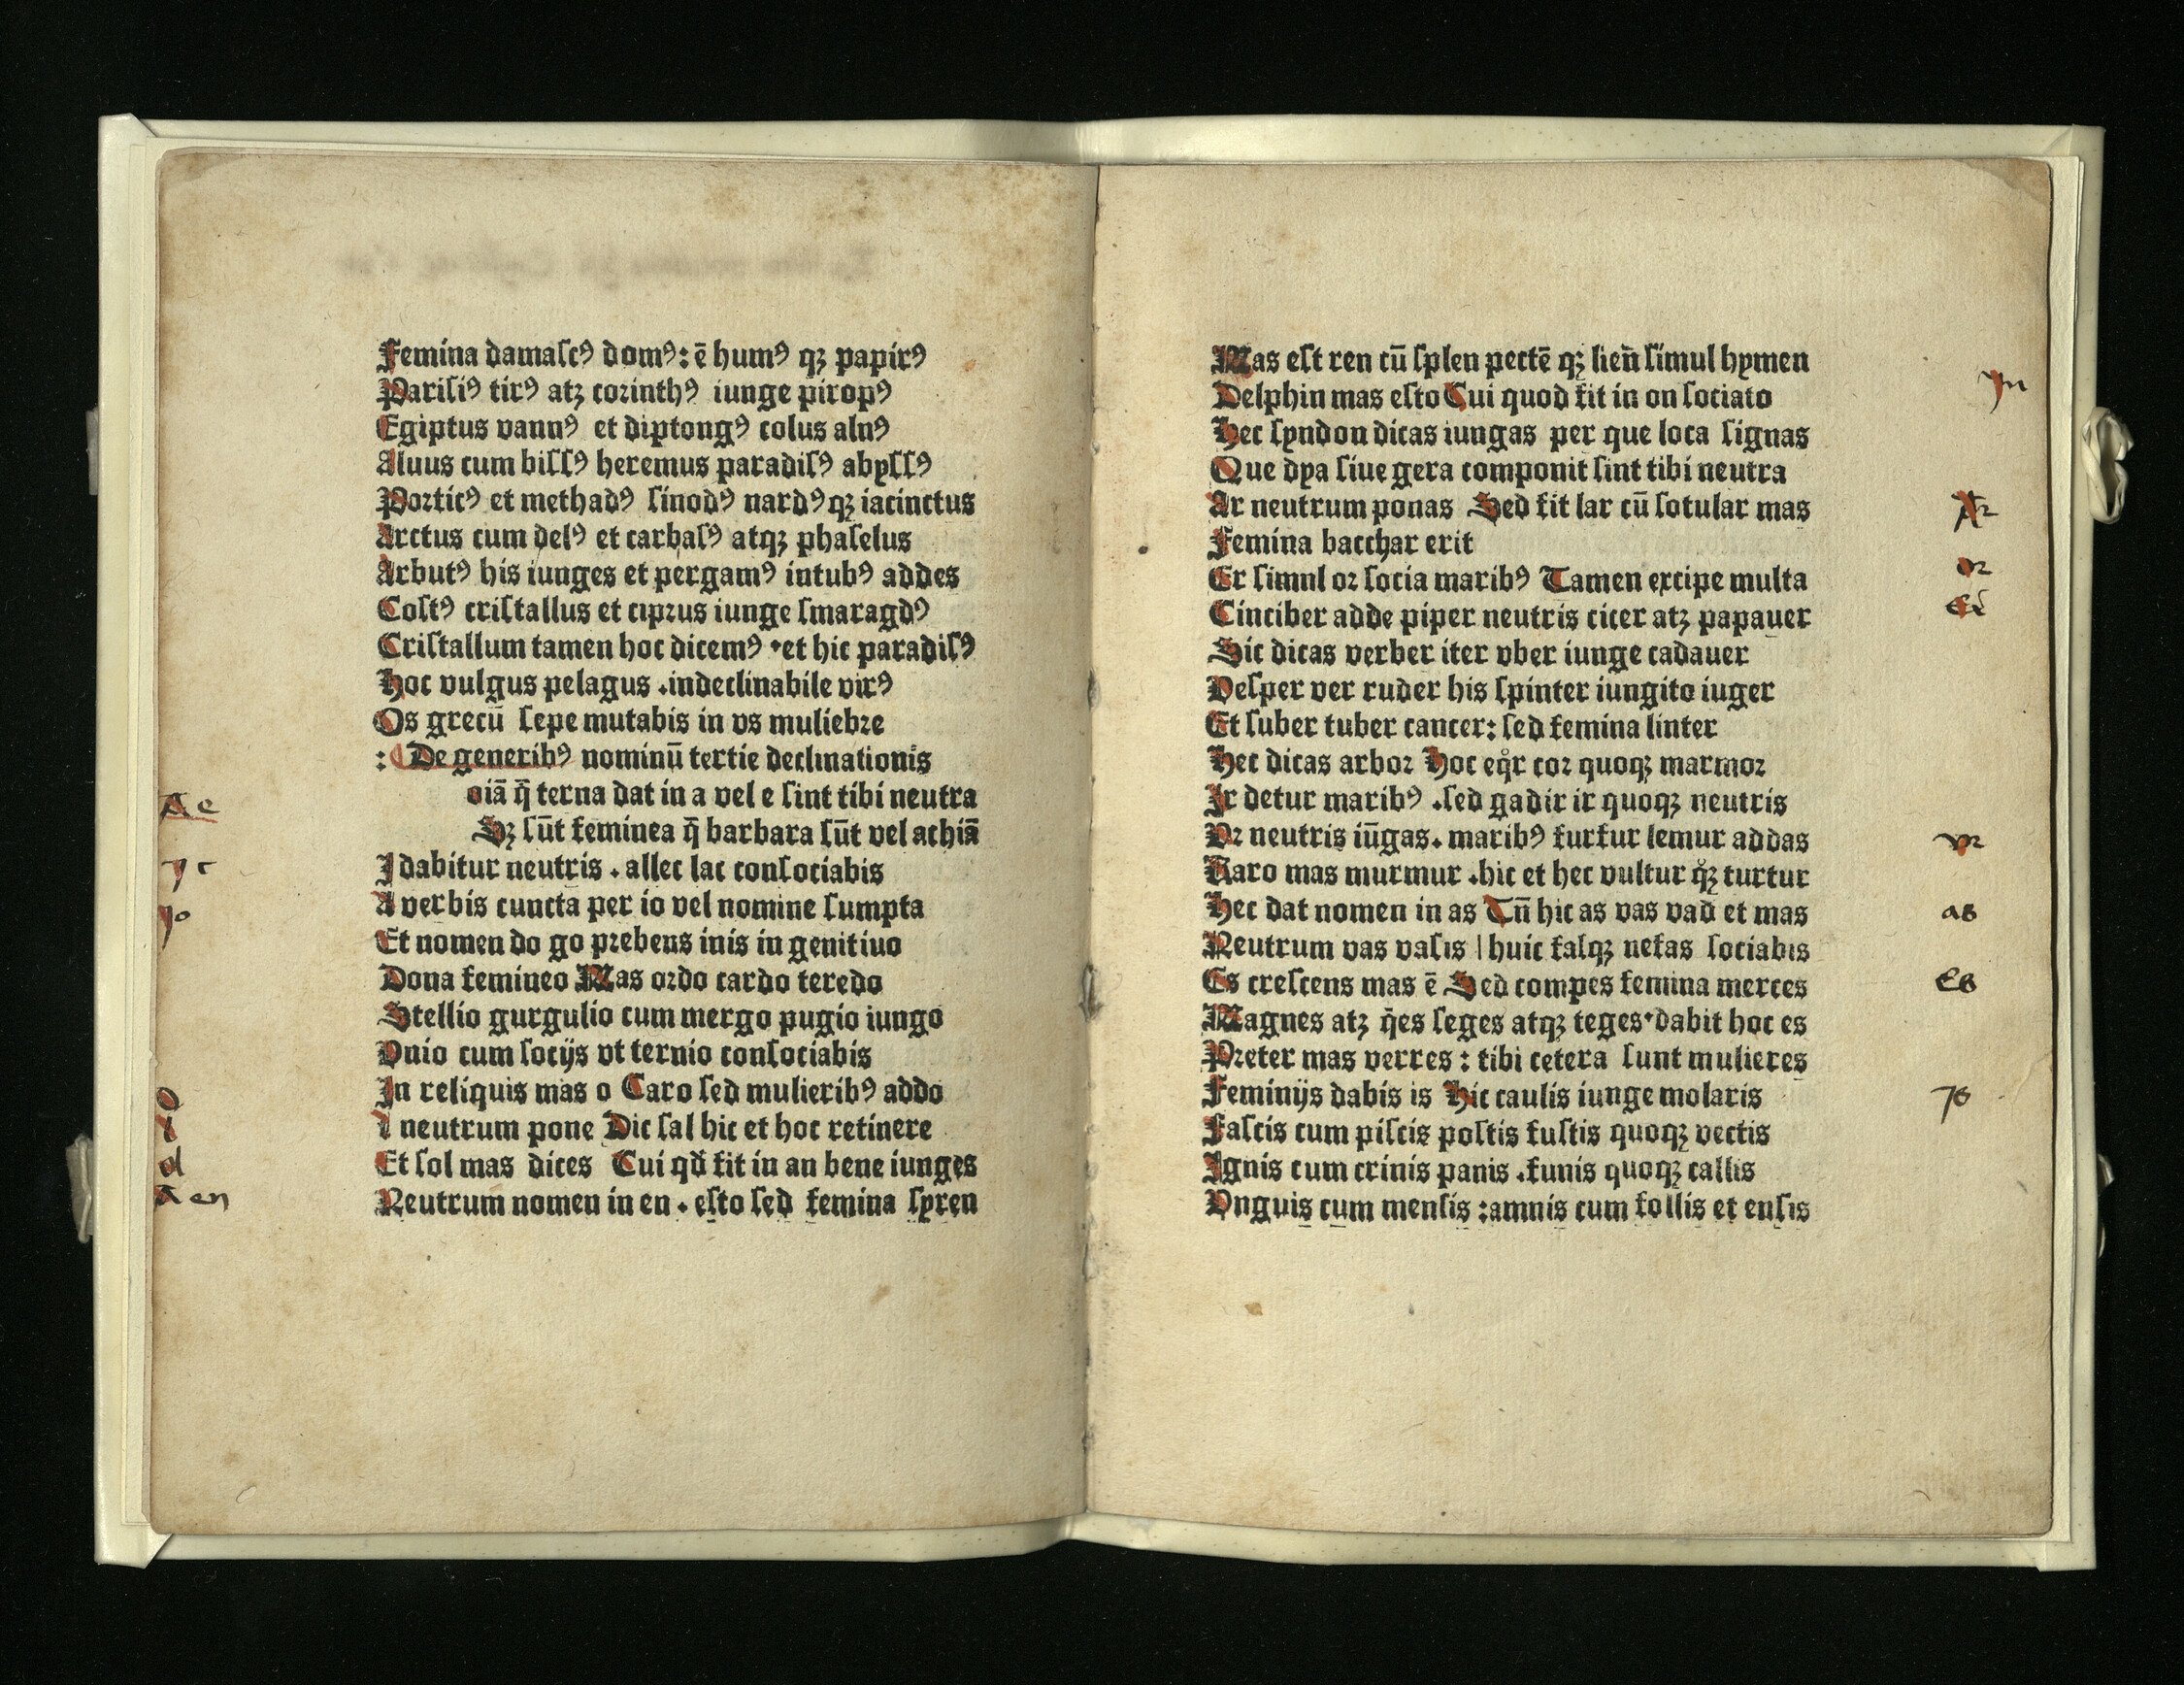 Femina damaſcꝰ domꝰ: ē humꝰ qꝫ papirꝰ
Pariſiꝰ tirꝰ atꝫ coꝛinthꝰ iunge piropꝰ
Egiptus vannꝰ et diptongꝰ colus alnꝰ
Aluus cum biſſꝰ heremus paradiſꝰ abyſſꝰ
Poꝛticꝰ et methadꝰ ſinodꝰ nardꝰqꝫ iacinctus
Arctus cum delꝰ et carbaſꝰ atqꝫ phaſelus
Arbutꝰ his iunges et pergamꝰ intubꝰ addes
Coſtꝰ criſtallus et cipꝛus iunge ſmaragdꝰ
Criſtallum tamen hoc dicemꝰ ·et hic paradiſꝰ
Hoc vulgus pelagus .indeclinabile virꝰ
Os grecū ſepe mutabis in vs muliebꝛe
: De generibꝰ nominū tertie declinationis
oiā q̄ terna dat in a vel e ſint tibi neutra
Sꝫ ſūt feminea q̄ barbara ſūt vel achiā
I dabitur neutris . allec lac conſociabis
A verbis cuncta per io vel nomine ſumpta
Et nomen do go pꝛebens inis in genitiuo
Dona femineo Mas oꝛdo cardo teredo
Stellio gurgulio cum mergo pugio iungo
Vnio cum ſocijs vt ternio conſociabis
In reliquis mas o Caro ſed mulieribꝰ addo
l neutrum pone Dic ſal hic et hoc retinere
Et ſol mas dices Cui qd̄ fit in an bene iunges
Neutrum nomen in en . eſto ſed femina ſyren
A e
c
o
l
A en
Mas eſt ren cū ſplen pectē qꝫ lien̄ ſimul hymen
Delphin mas eſto Cui quod fit in on ſociato
Hec ſyndon dicas iungas per que loca ſignas
Que dya ſiue gera componit ſint tibi neutra
Ar neutrum ponas Sed fit lar cū ſotular mas
Femina bacchar erit
Er ſimnl oꝛ ſocia maribꝰ Tamen excipe multa
Cinciber adde piper neutris cicer atꝫ papauer
Sic dicas verber iter vber iunge cadauer
Veſper ver ruder his ſpinter iungito iuger
Et ſuber tuber cancer: ſed femina linter
Hec dicas arboꝛ Hoc eqͦr coꝛ quoqꝫ marmoꝛ
Ir detur maribꝰ .ſed gadir ir quoqꝫ neutris
Vꝛ neutris iūgas. maribꝰ furfur lemur addas
Raro mas murmur .hic et hec vultur qͦꝫ turtur
Hec dat nomen in as Tn̄ hic as vas vad et mas
Neutrum vas vaſis | huic falqꝫ nefas ſociabis
Es creſcens mas ē Sed compes femina merces
Magnes atꝫ q̄es ſeges atqꝫ teges·dabit hoc es
Pꝛeter mas verres : tibi cetera ſunt mulieres
Feminijs dabis is Hic caulis iunge molaris
Faſcis cum piſcis poſtis fuſtis quoqꝫ vectis
Ignis cum crinis panis .funis quoqꝫ callis
Vnguis cum menſis :amnis cum follis et enſis
yn
Ar
or
Er
vr
as
Es
Js